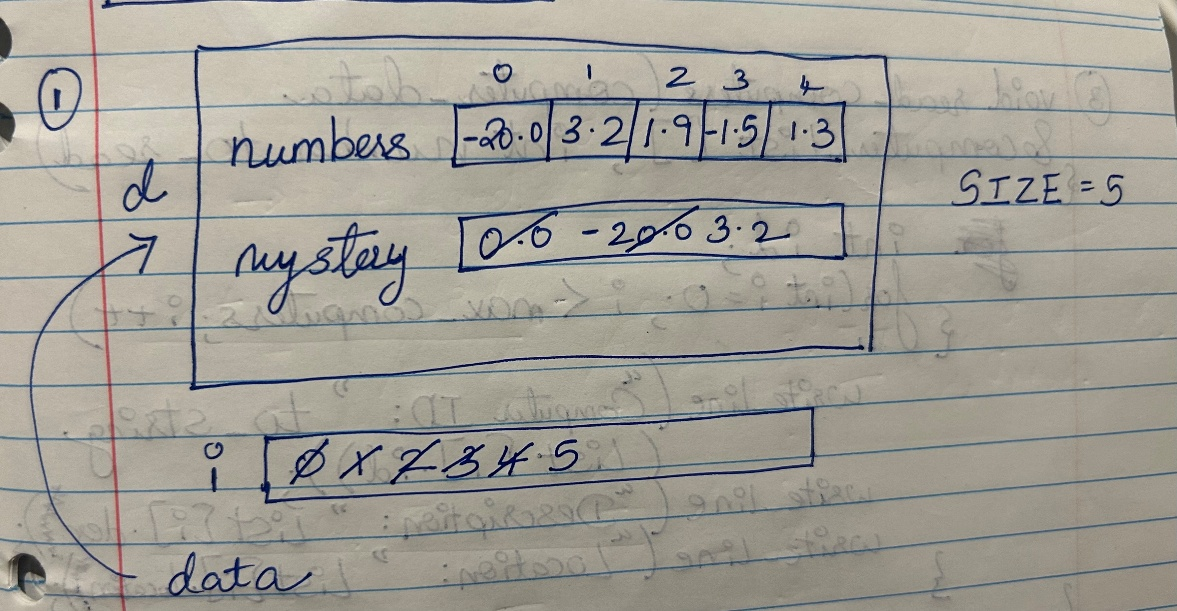 ①
0 1 2 3 4
numbers -20.0 3.2 1.9 -1.5 1.3
d
SIZE = 5
mystery 0.0 -20.0 3.2
i 0 1 2 3 4 5
data